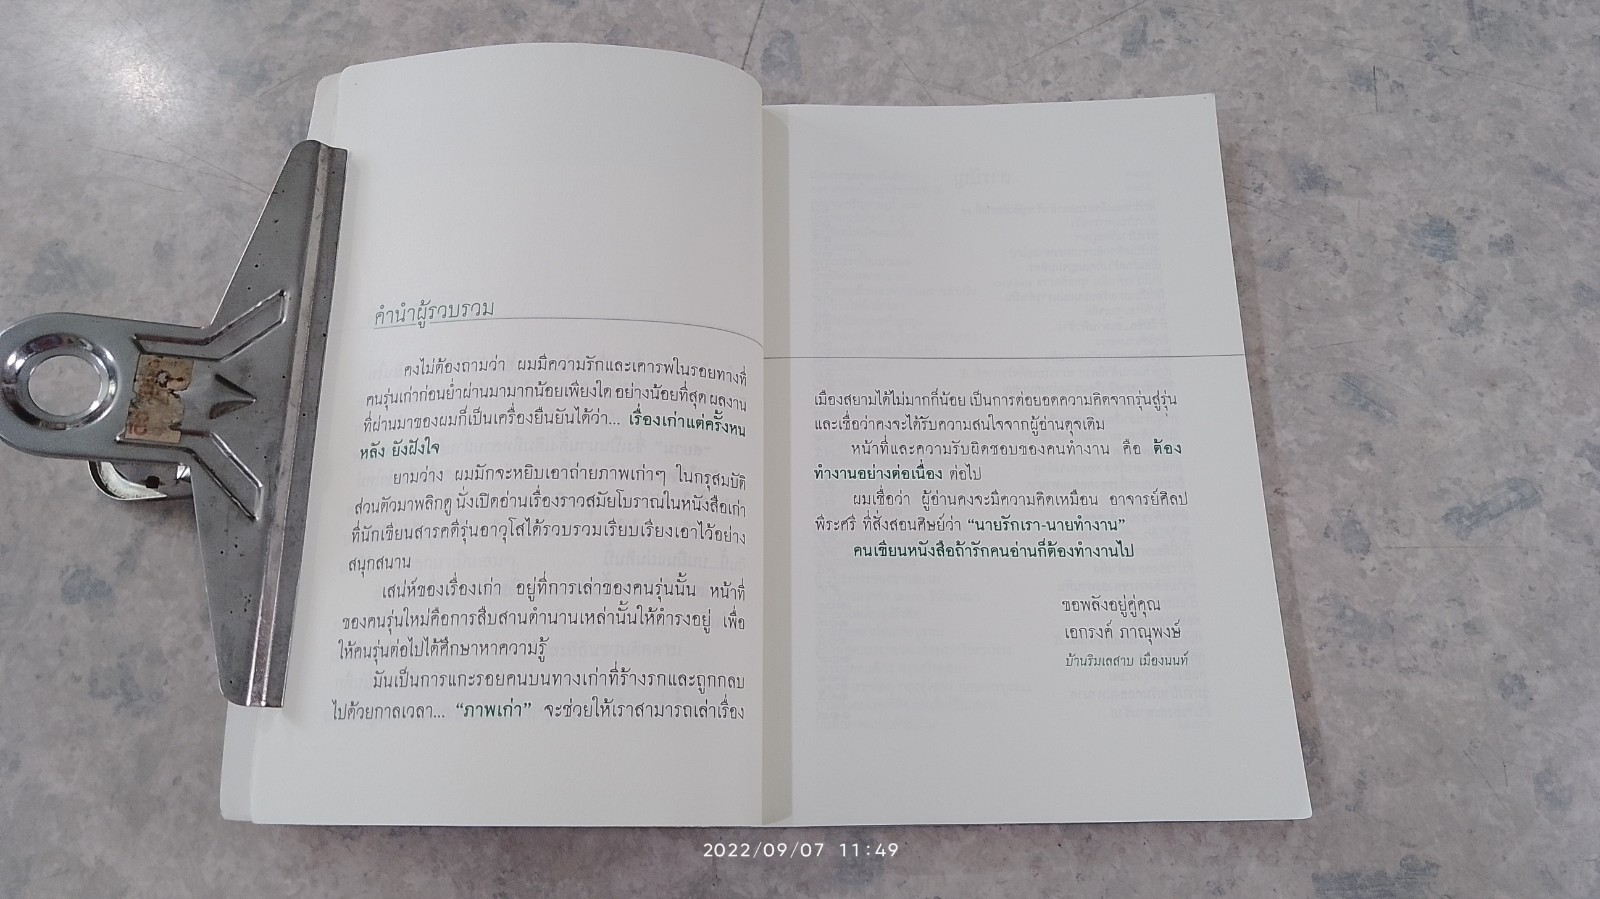 คำนำผู้รวบรวม
คงไม่ต้องถามว่า ผมมีความรักและเคารพในรอยทางที่
คนรุ่นเก่าก่อนย่ำผ่านมามากน้อยเพียงใด อย่างน้อยที่สุด ผลงาน
ที่ผ่านมาของผมก็เป็นเครื่องยืนยันได้ว่า... เรื่องเก่าแต่ครั้งหน
หลัง ยังฝังใจ
ยามว่าง ผมมักจะหยิบเอาถ่ายภาพเก่าๆ ในกรุสมบัติ
ส่วนตัวมาพลิกดู นั่งเปิดอ่านเรื่องราวสมัยโบราณในหนังสือเก่า
ที่นักเขียนสารคดีรุ่นอาวุโสได้รวบรวมเรียบเรียงเอาไว้อย่าง
สนุกสนาน
เสน่ห์ของเรื่องเก่า อยู่ที่การเล่าของคนรุ่นนั้น หน้าที่
ของคนรุ่นใหม่คือการสืบสานตำนานเหล่านั้นให้ดำรงอยู่ เพื่อ
ให้คนรุ่นต่อไปได้ศึกษาหาความรู้
มันเป็นการแกะรอยคนบนทางเก่าที่ร้างรกและถูกกลบ
ไปด้วยกาลเวลา... “ภาพเก่า” จะช่วยให้เราสามารถเล่าเรื่อง
เมืองสยามได้ไม่มากก็น้อย เป็นการต่อยอดความคิดจากรุ่นสู่รุ่น
และเชื่อว่าคงจะได้รับความสนใจจากผู้อ่านดุจเดิม
หน้าที่และความรับผิดชอบของคนทำงาน คือ ต้อง
ทำงานอย่างต่อเนื่อง ต่อไป
ผมเชื่อว่า ผู้อ่านคงจะมีความคิดเหมือน อาจารย์ศิลป
พีระศรี ที่สั่งสอนศิษย์ว่า “นายรักเรา-นายทำงาน”
คนเขียนหนังสือถ้ารักคนอ่านก็ต้องทำงานไป
ขอพลังอยู่คู่คุณ
เอกรงค์ ภาณุพงษ์
บ้านริมเลสาบ เมืองนนท์
2022/09/07 11:49